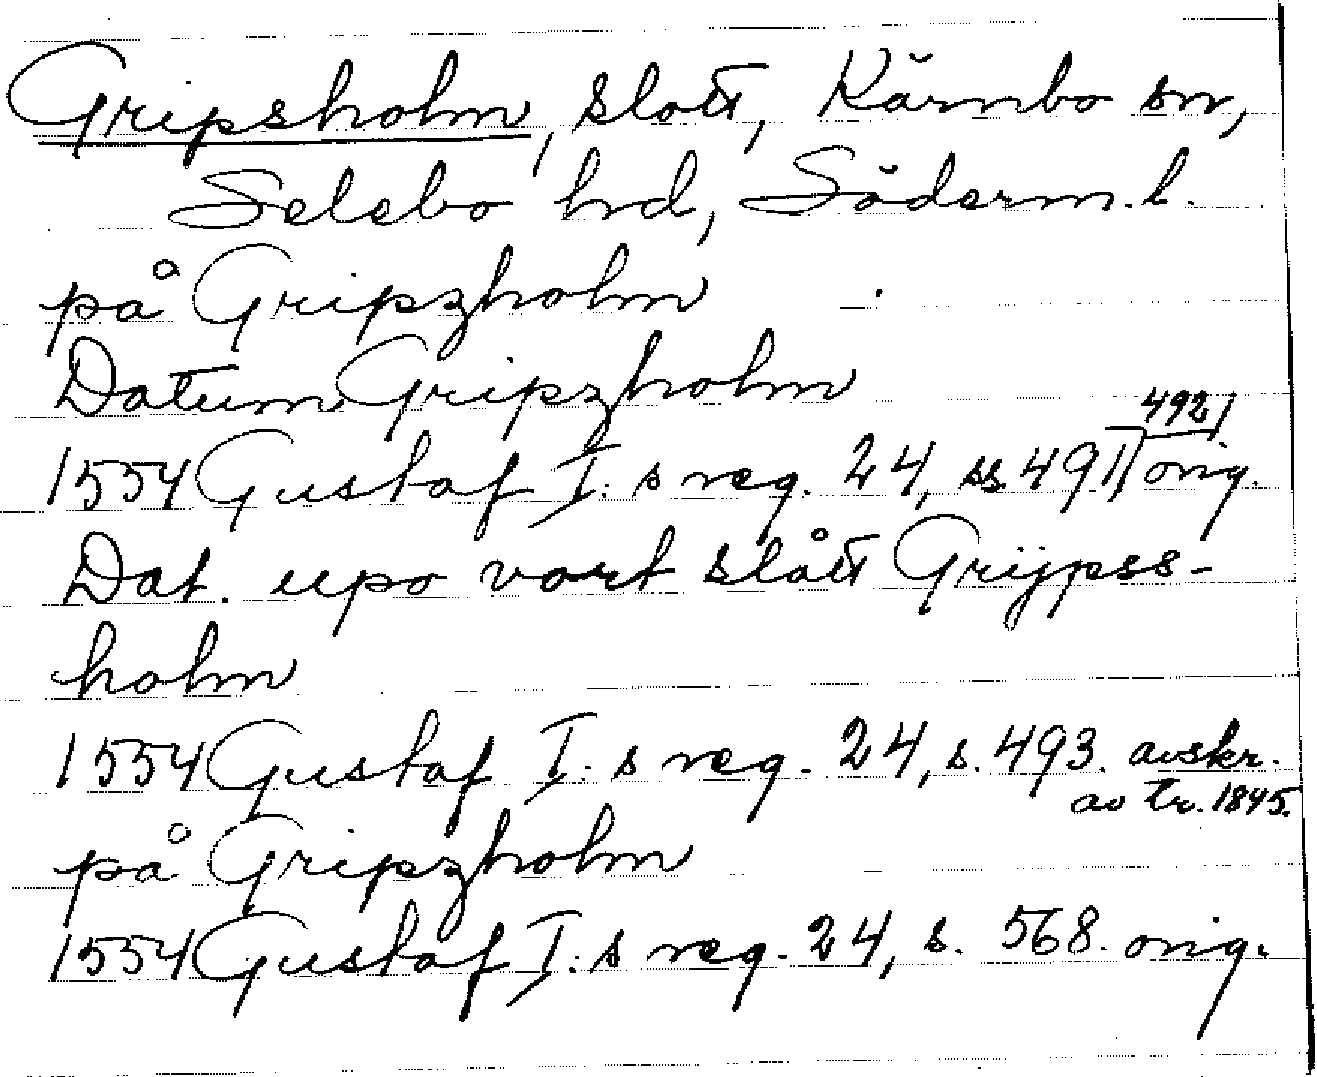 Gripsholm, slott, Kärnbo sn,
Selebo hd, Söderm. l.
på Gripzholm
Datum Gripzholm
1554 Gustaf I:s reg. 24, ss. 491, 492, orig.
Dat. upo vort slått Grijpss-
holm
1554 Gustaf I:s reg. 24, s. 493. avskr.
av tr. 1845.
på Gripzholm
1554 Gustaf I:s reg. 24, s. 568. orig.